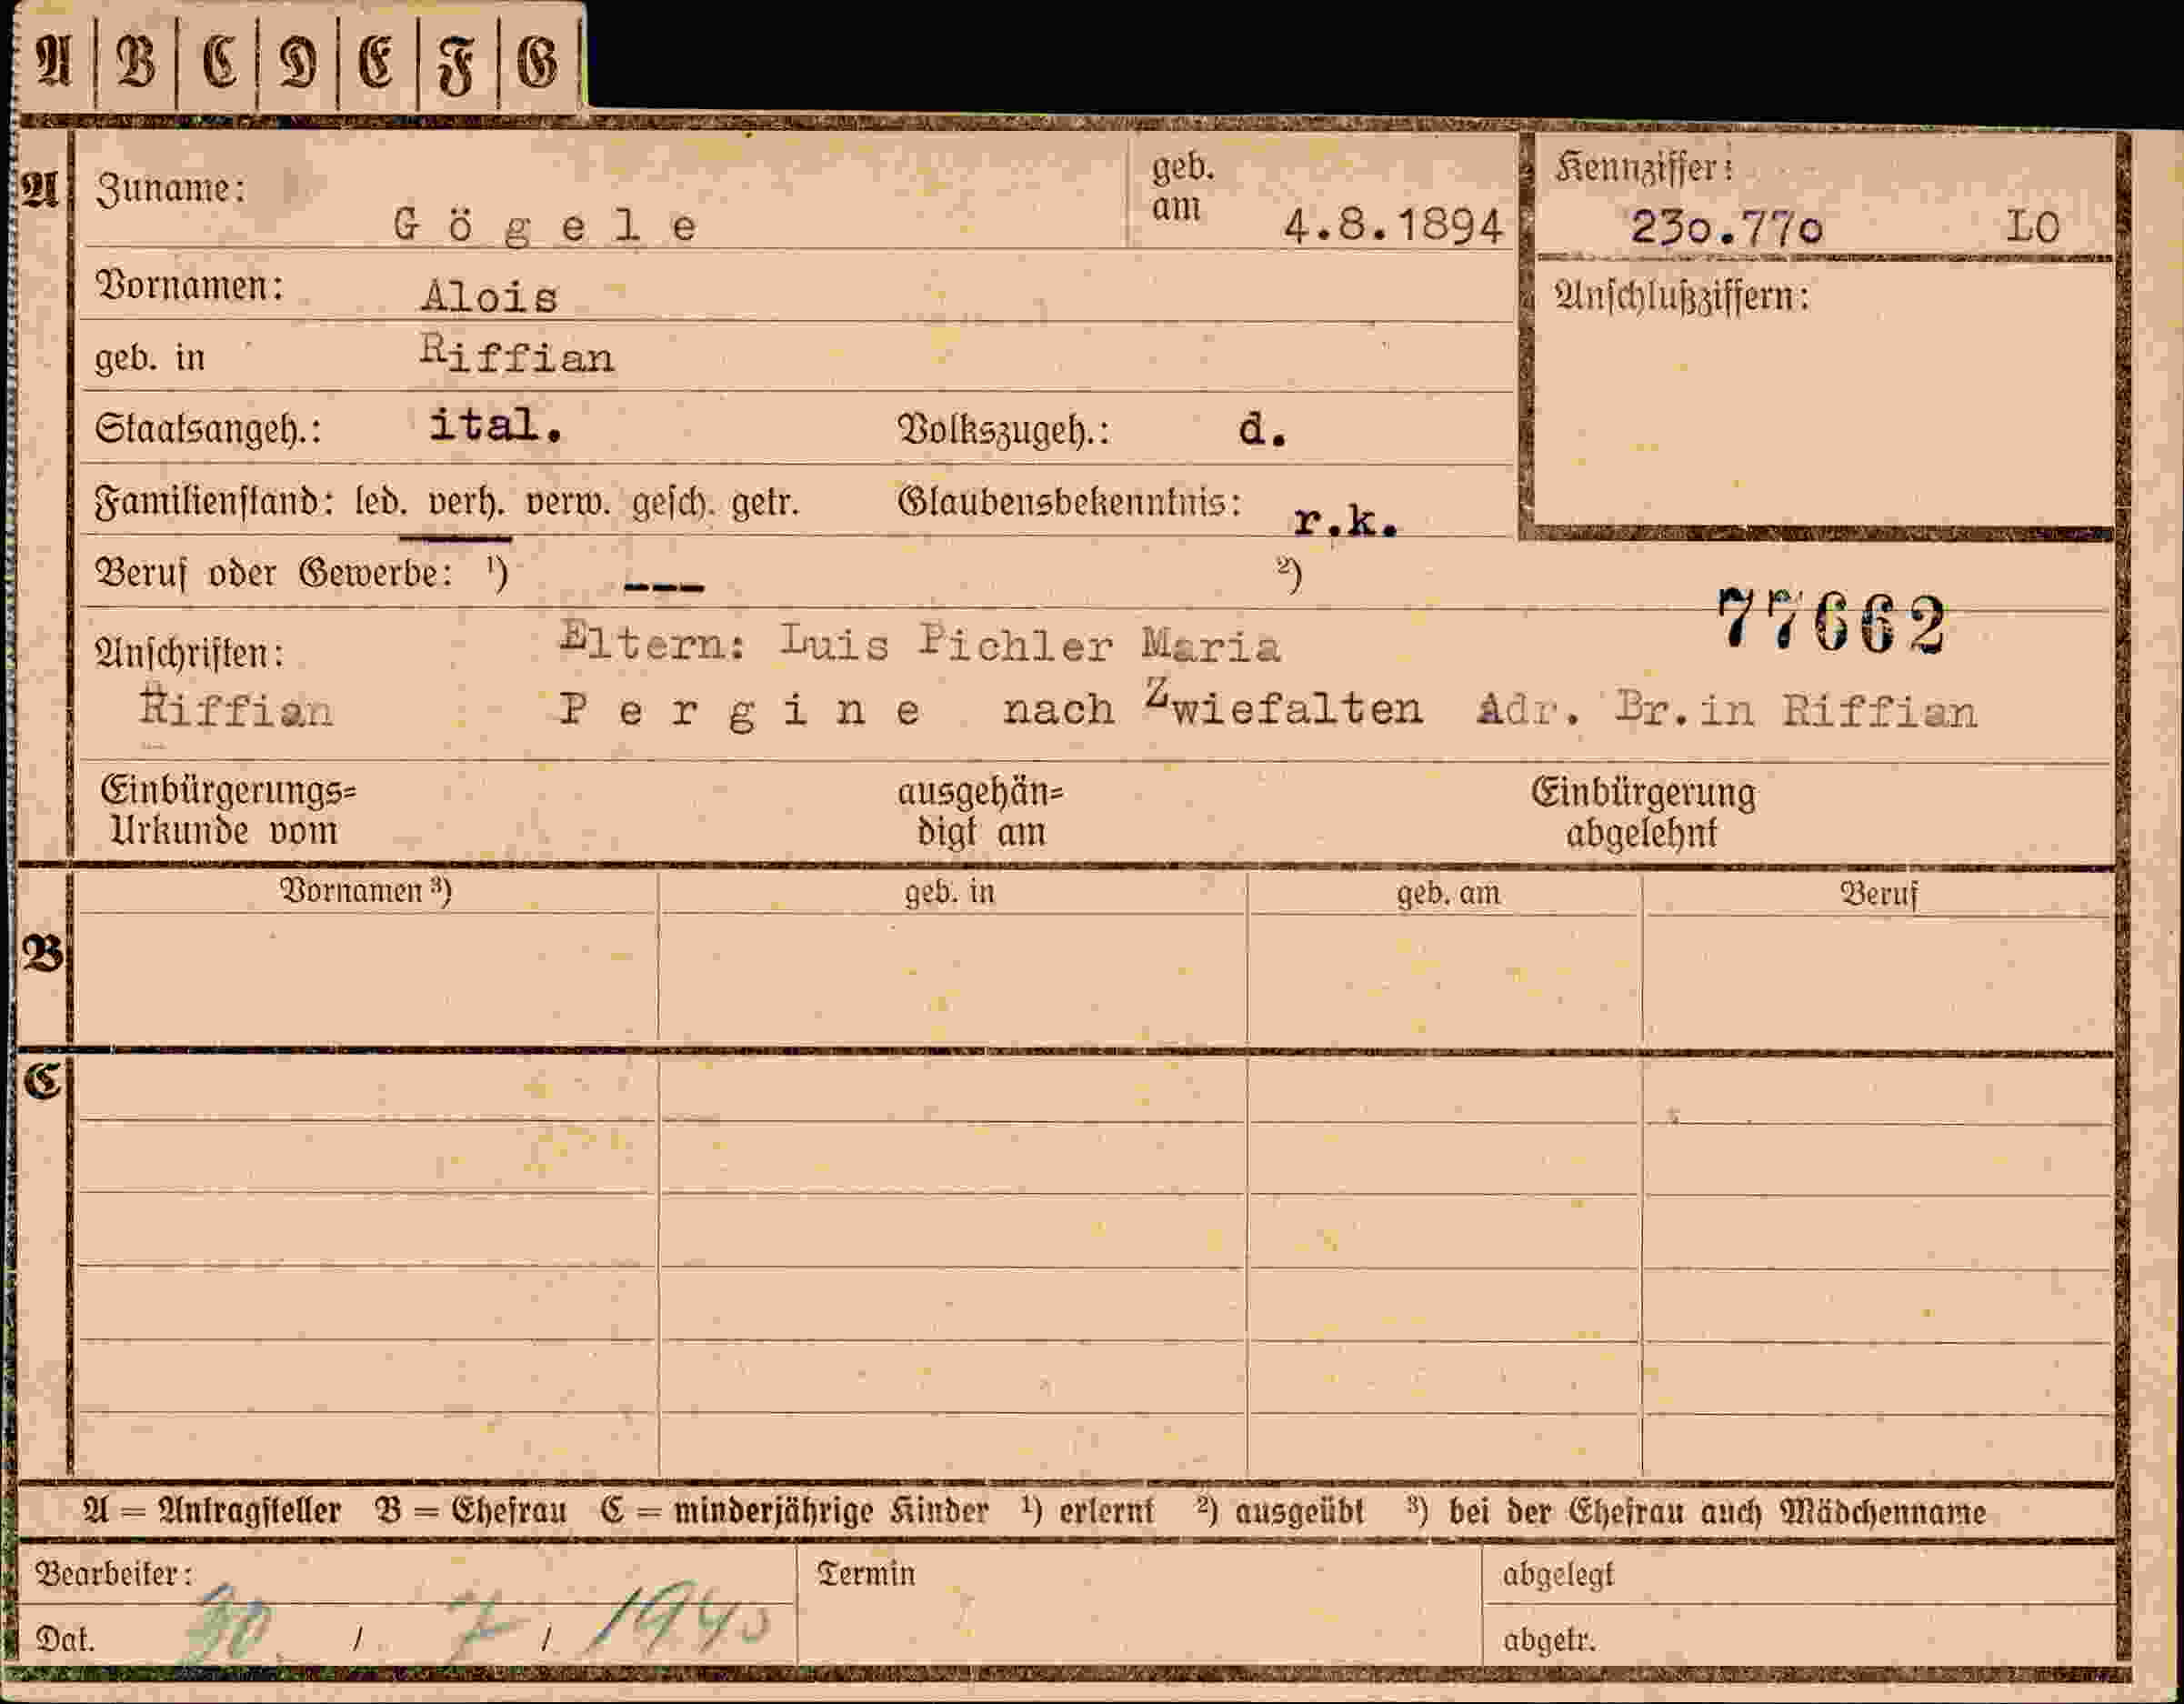 A B C D E F G
A Zuname: Gögele geb. am 4.8.1894 Kennziffer: 230.770 LO
Vornamen: Alois Anschlußziffern:
geb. in Riffian
Staatsangeh.: ital. Volkszugeh.: d.
Familienstand: led. verh. verw. gesch. getr. Glaubensbekenntnis: r.k.
Beruf oder Gewerbe: ¹) --- ²)
77662
Anschriften: Eltern: Luis Pichler Maria
Riffian Pergine nach Zwiefalten Adr. Br.in Riffian
Einbürgerungs= ausgehän= Einbürgerung
Urkunde vom digt am abgelehnt
Vornamen ³) geb. in geb. am Beruf
B
C
A = Antragsteller B = Ehefrau C = minderjährige Kinder ¹) erlernt ²) ausgeübt ³) bei der Ehefrau auch Mädchenname
Bearbeiter: Termin abgelegt
Dat. 30 / 7 / 1940 abgetr.